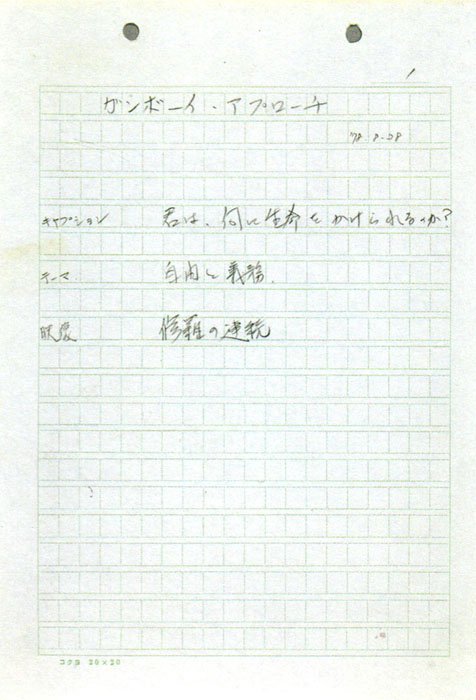 ガンボーイ・アプローチ
キャプション 君は、何に生命をかけられるか?
テーマ 自由と義務.
映像 修羅の連続
コクヨ 20×20